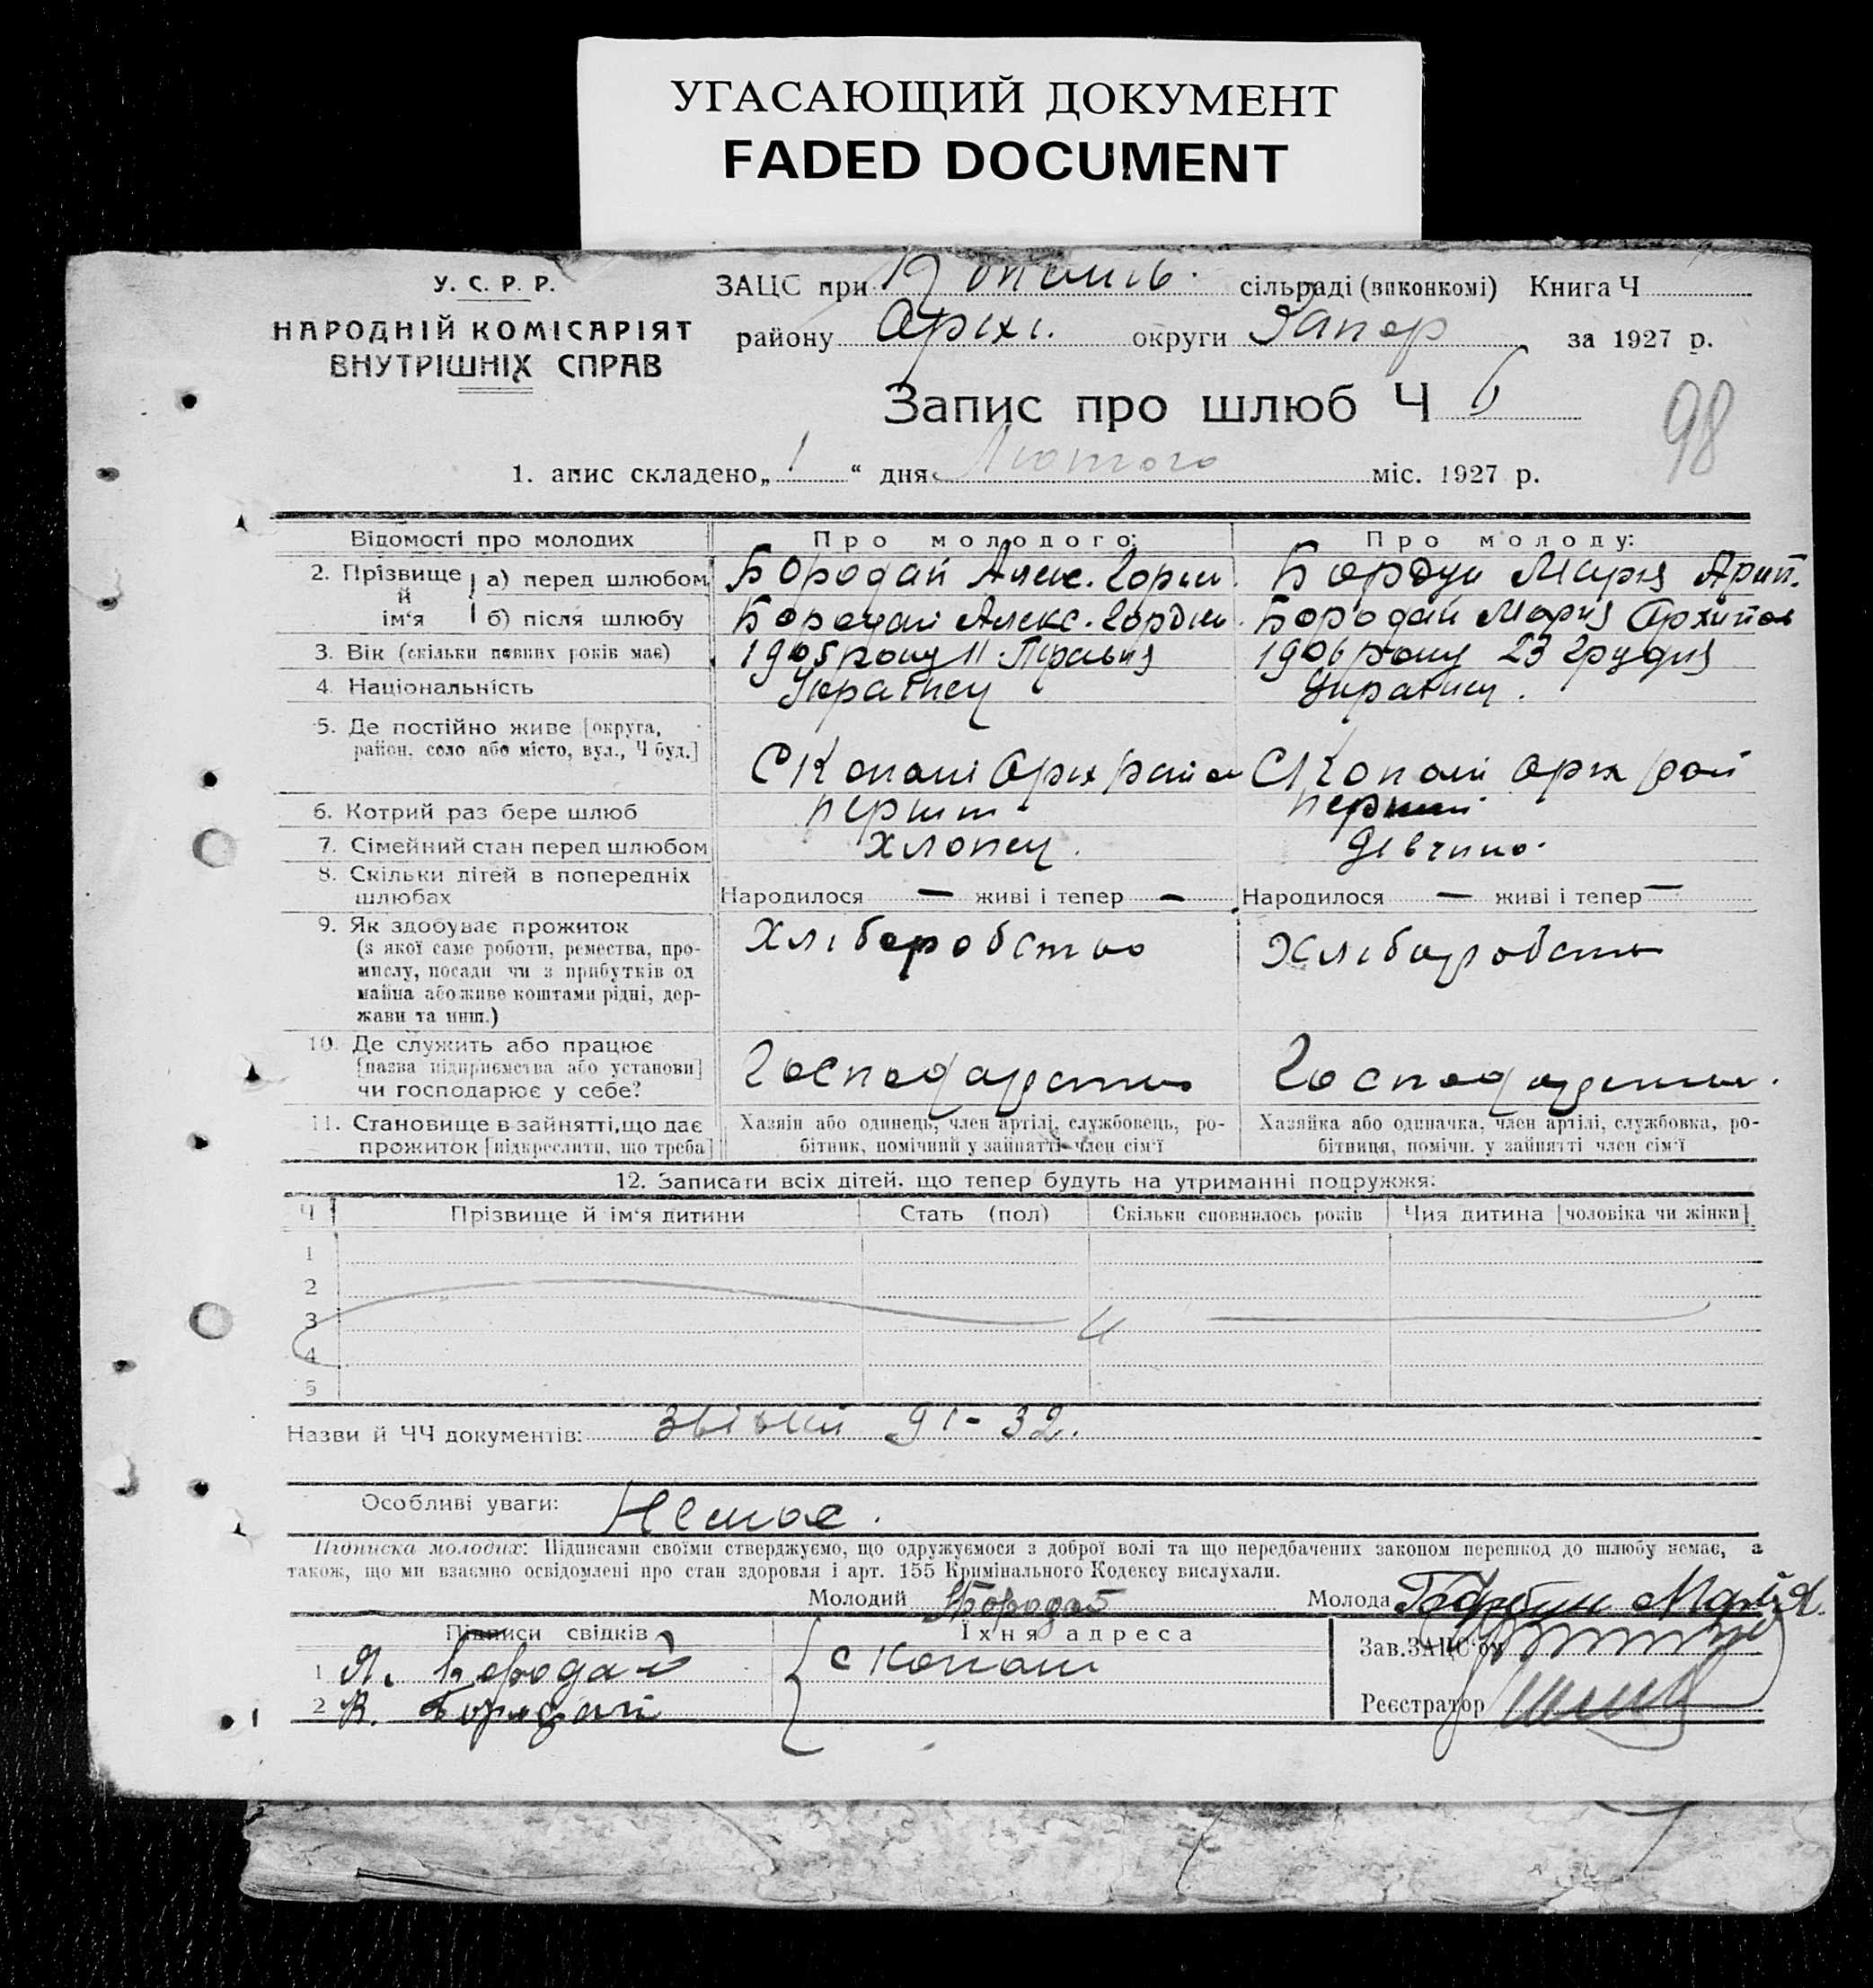 УГАСАЮЩИЙ ДОКУМЕНТ
FADED DOCUMENT
У. С. Р. Р.
НАРОДНІЙ КОМІСАРІЯТ
ВНУТРІШНІХ СПРАВ
ЗАЦС при Копанів. сільраді (виконкомі) Книга Ч
району Оріхі. округи Запор за 1927 р.
Запис про шлюб Ч 6
98
1. апис складено „ 1 “ дня Лютого міс. 1927 р.
Відомості про молодих Про молодого: Про молоду:
2. Прізвище й ім‘я а) перед шлюбом Бородай Алекс. Борбун Мария Архип.
б) після шлюбу Бородай Алекс. Гордієв. Бородай Мария Архипов
3. Вік (скільки певних років має) 1905 року 11 1906 року 23 Грудня
4. Національність Українец Украінец.
5. Де постійно живе [округа, район, село або місто, вул., Ч буд.] С Копані Оріх район С Копані Оріх рай
6. Котрий раз бере шлюб перший перший
7. Сімейний стан перед шлюбом Хлопец. Дівчина.
8. Скільки дітей в попередніх шлюбах Народилося — живі і тепер — Народилося — живі і тепер —
9. Як здобуває прожиток Хліборобство Хліборобство
(з якої саме роботи, ремества, про-
мислу, посади чи з прибутків од
майна або живе коштами рідні, дер-
жави та инш.)
10. Де служить або працює Господарство Господарство.
[назва підприємства або установи]
чи господарює у себе?
11. Становище в зайнятті, що дає Хазяїн або одинець, член артілі, службовець, ро- Хазяйка або одиначка, член артілі, службовка, ро-
прожиток [підкреслити, що треба] бітник, помічний у зайнятті член сім‘ї бітниця, помічн. у зайнятті член сім‘ї
12. Записати всіх дітей, що тепер будуть на утриманні подружжя:
Ч Прізвище й ім‘я дитини Стать (пол) Скільки сповнилось років Чия дитина [чоловіка чи жінки]
1
2
3
4
5
Назви й ЧЧ документів: 91-32.
Особливі уваги: Немає.
Підписка молодих: Підписами своїми стверджуємо, що одружуємося з доброї волі та що передбачених законом перешкод до шлюбу немає, а
також, що ми взаємно освідомлені про стан здоровля і арт. 155 Кримінального Кодексу вислухали.
Молодий Бородай Молода Борбун Марія.
Підписи свідків Їхня адреса Зав. ЗАЦС‘ом
1 Я. Бородай с Копані
2 К. Бородай Реєстратор